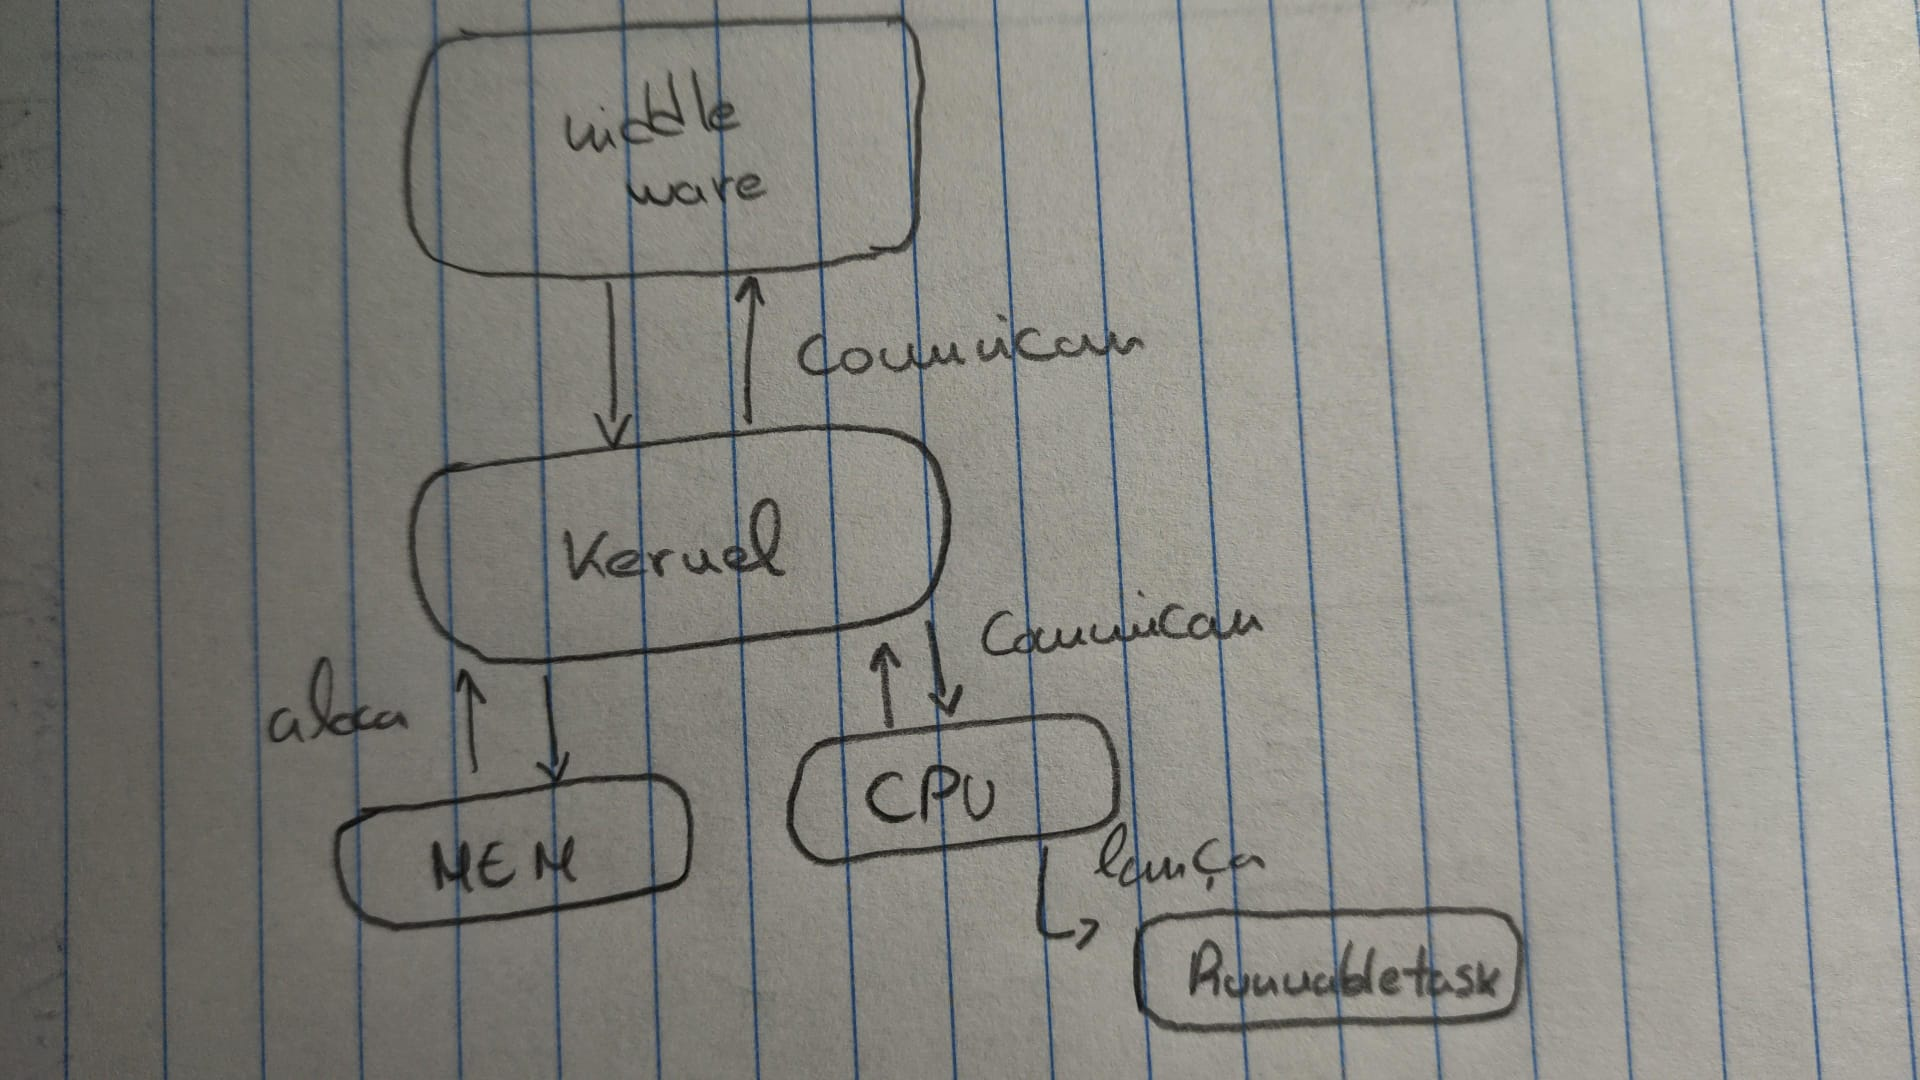 middle
ware
Comunicam
Kernel
Comunicam
aloca
CPU
MEM
lança
Runnabletask